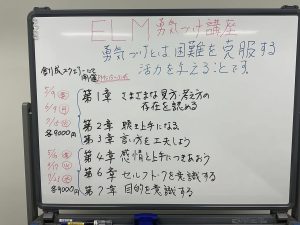 ELM勇気づけ講座
勇気づけとは困難を克服する
活力を与えることです。
創成スクエアにて
開催
第1章 さまざまな見方・考え方の
存在を認める
第2章 聴き上手になる
第3章 言い方を工夫しよう
各9000円
第4章 感情と上手につきあおう
第6章 セルフトークを意識する
各9000円
第7章 目的を意識する